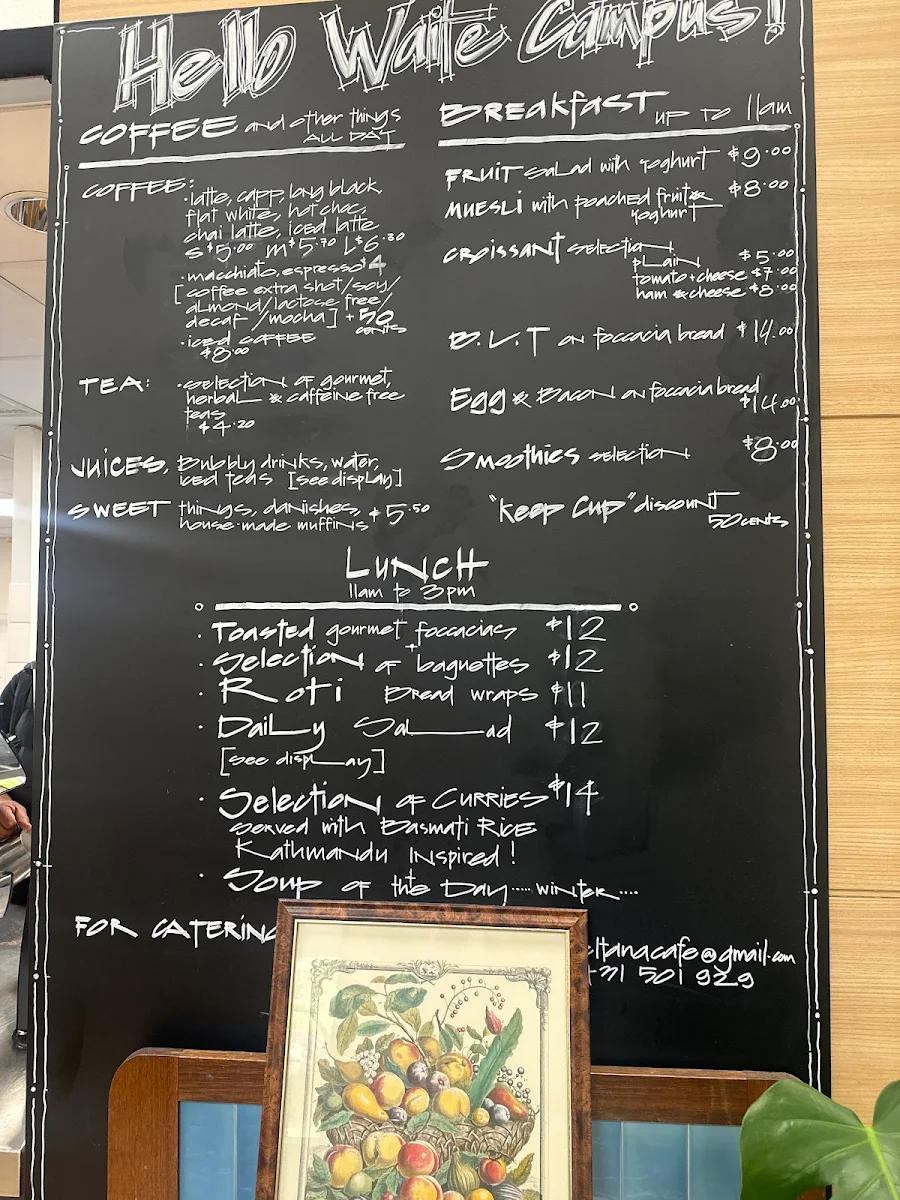 Hello Waite Campus!
COFFEE and other things
ALL DAY
COFFEE:
· latte, capp, long black,
flat white, hot choc,
chai latte, iced latte
S $5.00 M $5.70 L $6.30
· macchiato, espresso $4
[coffee extra shot/soy/
almond/lactose free/
decaf/mocha] + 50
cents
· iced COFFEE
$8.00
TEA: · selection of gourmet,
herbal & caffeine free
teas
$4.20
JUICES, Bubbly drinks, water,
iced teas [see display]
SWEET things, danishes,
house-made muffins $5.50
BREAKFAST UP TO 11am
FRUIT salad with Yoghurt $9.00
MUESLI with poached fruit & $8.00
Yoghurt
CROISSANT selection
PLAIN $5.00
tomato + cheese $7.00
ham & cheese $8.00
B.L.T on foccacia bread $14.00
Egg & Bacon on foccacia bread
$14.00
Smoothies selection $8.00
"Keep Cup" discount
50 cents
LUNCH
11am to 3pm
· Toasted gourmet foccacias $12
· Selection of baguettes $12
· Roti Bread wraps $11
· Daily Salad $12
[see display]
· Selection of CURRIES $14
served with Basmati Rice
Kathmandu Inspired!
· Soup of the Day ..... winter ....
FOR CATERING
ltanacafe@gmail.com
31 501 929